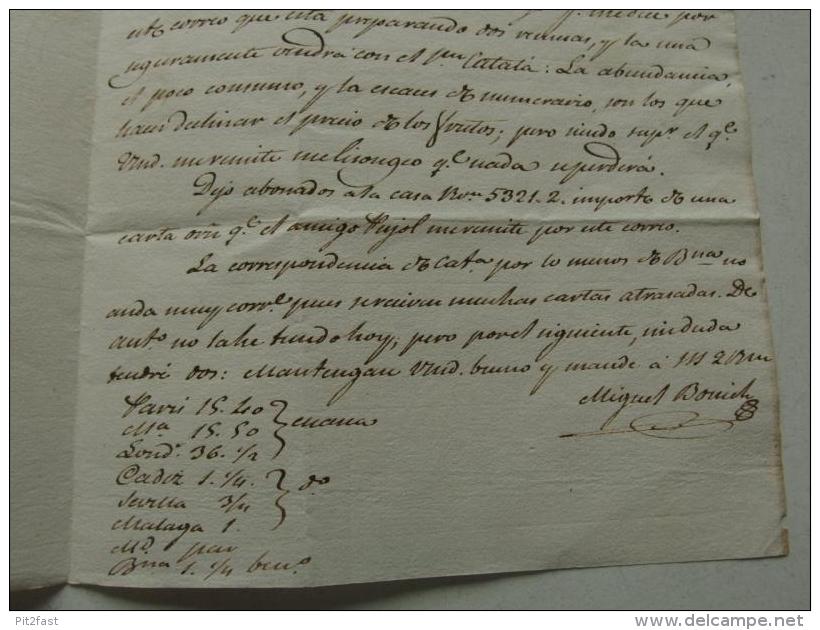 este correo que está preparando dos remesas, y la una
seguramente vendrá con el pn Catalá: La abundancia,
el poco consumo, y la escases de numerario, son los que
hacen declinar el precio de los frutos; pero siendo supr. el qe.
Vmd. me remite me lisongeo qe. nada se perderá.
Dejo abonados a la casa Rvn 5321.2. importe de una
carta orn qe. el amigo Pujol me remite por este correo.
La correspondencia de Cata. por lo menos de Bna no
anda muy corrte. pues se reciven muchas cartas atrasadas. De
anto. no la he tenido hoy; pero por el siguiente, sin duda
tendré dos: Mantengase Vmd. bueno y mande á
Miguel Bonich
Paris 15.40
Ma 15.50 } escasa
Londs. 36.1/2
Cadiz 1.1/4.
Sevilla 3/4 } do
Malaga 1.
Md. par
Bna 1.1/4 beno.
Pit2fast
www.delcampe.net